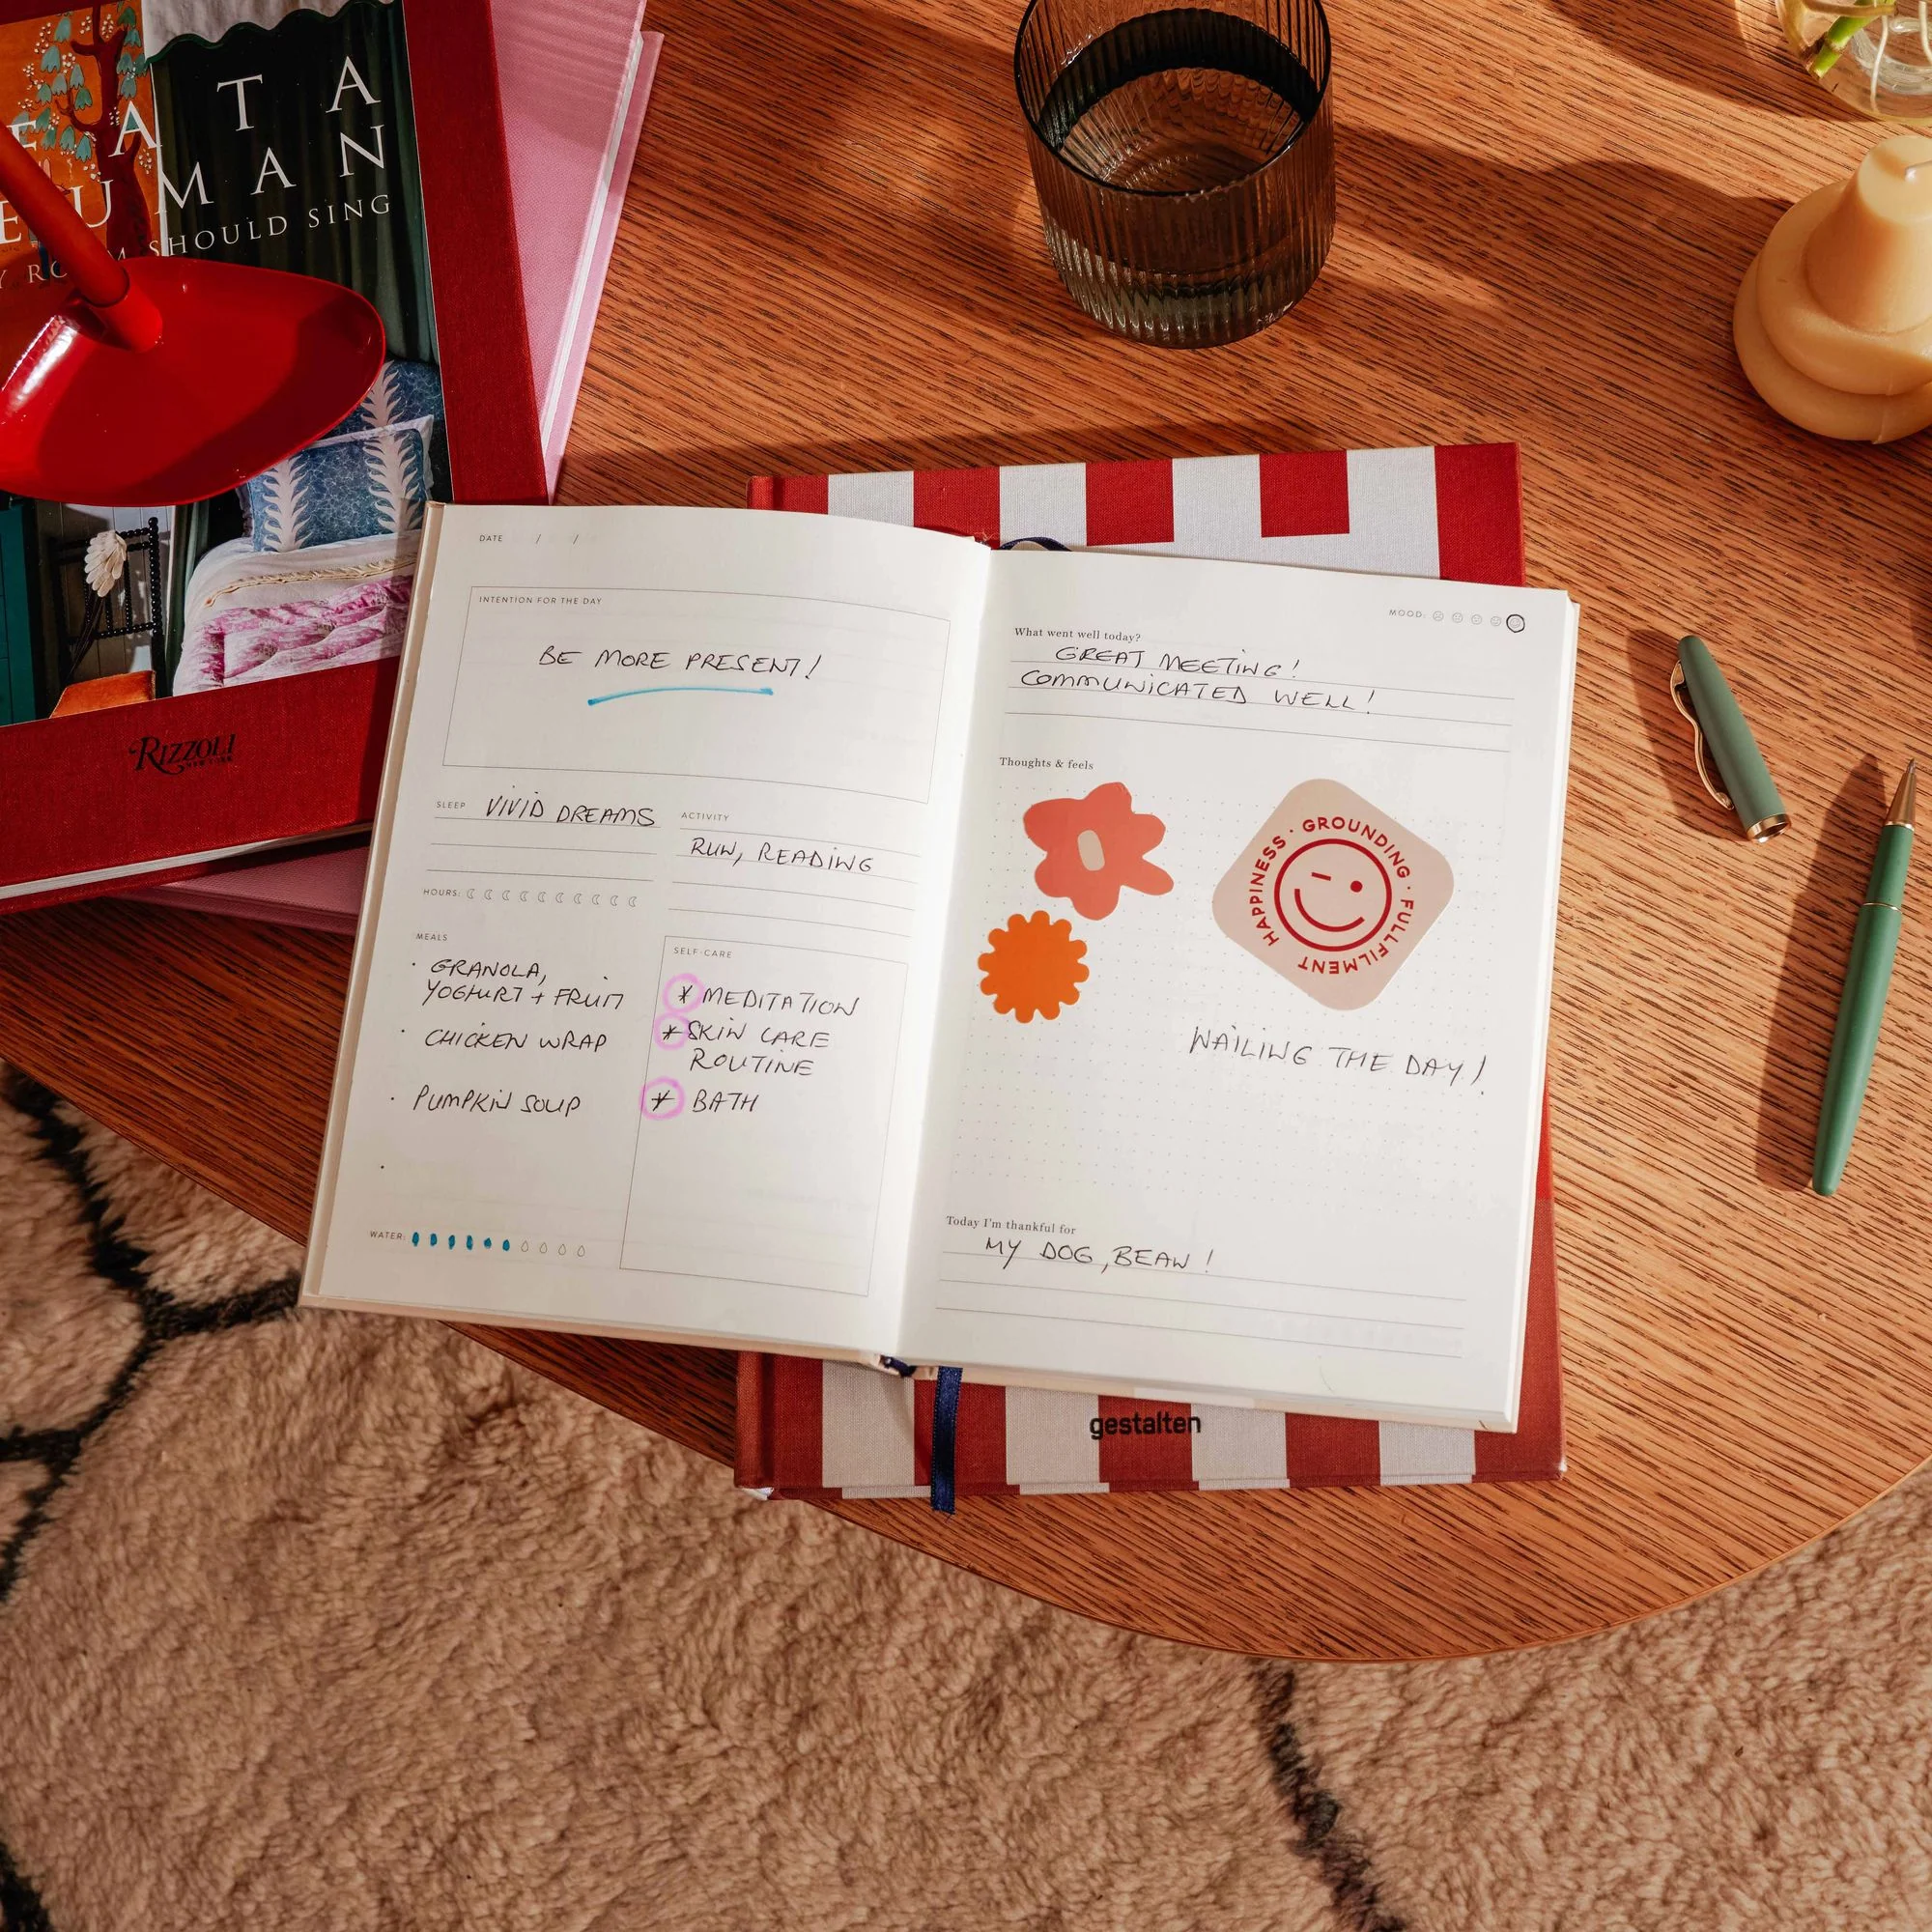 EATA
EUMAN
Y ROOM SHOULD SING
RIZZOLI
NEW YORK
DATE / /
INTENTION FOR THE DAY
BE MORE PRESENT!
SLEEP VIVID DREAMS
HOURS:
ACTIVITY
RUN, READING
MEALS
· GRANOLA,
YOGHURT + FRUIT
· CHICKEN WRAP
· PUMPKIN SOUP
·
WATER:
SELF-CARE
* MEDITATION
* SKIN CARE
ROUTINE
* BATH
MOOD:
What went well today?
GREAT MEETING!
COMMUNICATED WELL!
Thoughts & feels
HAPPINESS · GROUNDING · FULLFILMENT
NAILING THE DAY!
Today I'm thankful for
MY DOG, BEAN!
gestalten